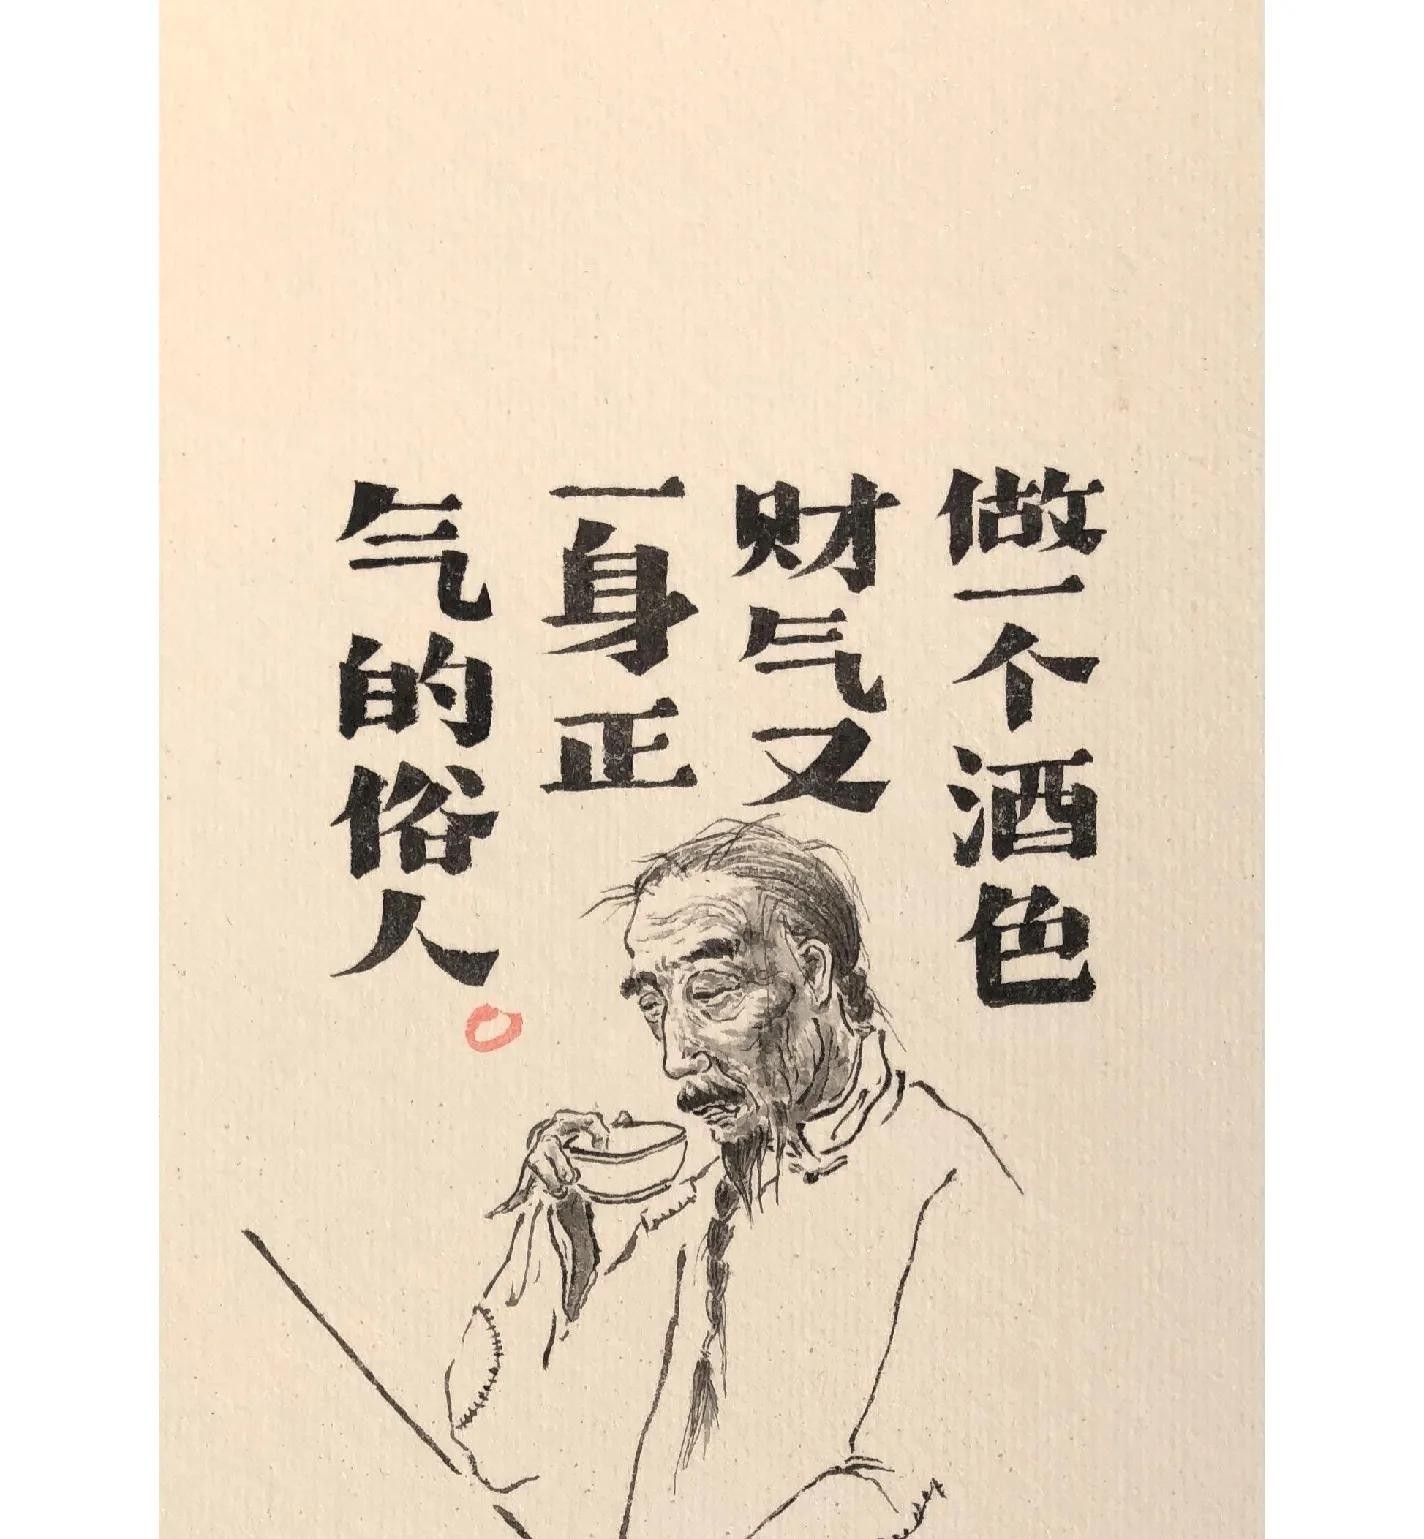 做一个酒色
财气又
一身正
气的俗人